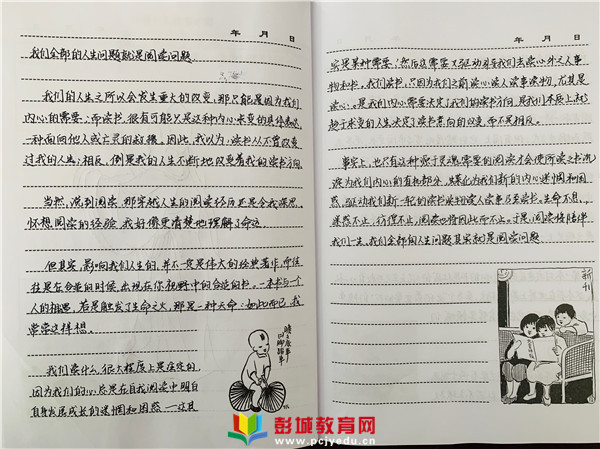 年 月 日
我们全部的人生问题就是阅读问题
我们的人生之所以会发生重大的改变,那只能是因为我们
内心的需要,而读书,很有可能只是这种内心改变的具体表达,
一种面向他人或亡灵的致敬。因此,我以为,读书从不曾改变
过我的人生;相反,倒是我的人生不断地改变着我的读书方向
当然,说到阅读,那穿越人生的阅读经历还是令我深思,
怀想阅读的经验,我好像更清楚地理解了命运
但其实,影响我们人生的,并不一定是伟大的经典著作,常往
往是在合适的时候,出现在你视野中的合适的书,一本书与一个
人的相遇,若是触发了生命之火,那是一种天命:如此而已,我
常常这样想。
我们读什么,很大程度上是注定的,
因为我们的心总是在自我阅读中明白
自身发展成长的迷惘和困惑
年 月 日
实是某种需要!然后这需要又驱动引导我们去读心外之人事
物和书。我们读书,只因为我们之前读心读人读事读物,尤其是
读心:是我们内心需要决定了我们的读书方向,是我们不屈上
求变的人生决定了读书意向的改变,而不是相反。
事实上,也只有这种源于灵魂需要的阅读才会使所读之书沉
淀为我们内心的有机部分,蝶化为我们新的内心迷惘和困
惑,驱动我们新一轮的读书读物读人读事乃至读书。生命不息,
迷惑不止,彷徨不止,阅读也将因此而不止。于是,阅读将陪伴
我们一生,我们全部的人生问题其实就是阅读问题
新刊
彭城教育网
www.pcjyedu.cn